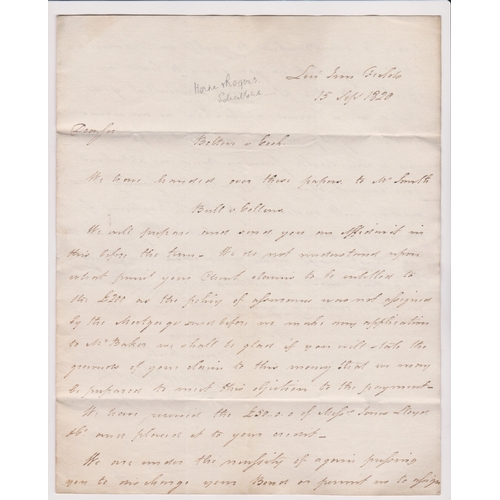 Horne & Rogers
Lin: Inn Fields
15 Sep 1820
Dear Sir
Bolton v
We have handed over these papers to Mr Smith
Bull v Collens
We will prepare and send you an Affidavit in
this before the term. We do not understand upon
what point your Client claims to be entitled to
the £200 as the policy of assurance was not assigned
by the Mortgage and before we make any application
to Mr Baker we shall be glad if you will state the
grounds of your claim to this money that we may
be prepared to meet this objection to the payment.
We have received the £50.0.0 of Messrs Jones Lloyd
& Co and placed it to your credit.
We are under the necessity of again pressing
you to discharge your Bond or permit us to assign